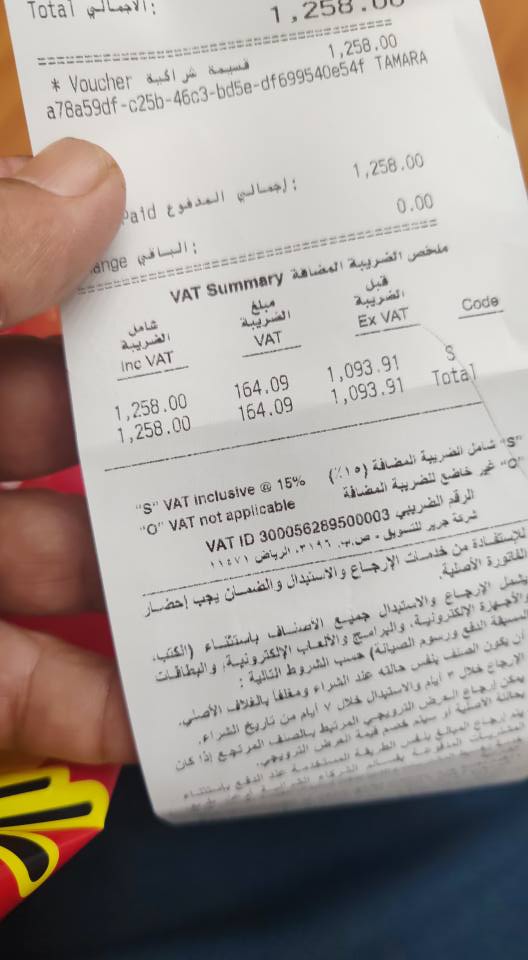 Total الاجمالي: 1,258.00
* Voucher قسيمة شرائية 1,258.00
a78a59df-c25b-46c3-bd5e-df699540e54f TAMARA
Paid إجمالي المدفوع: 1,258.00
ange الباقي: 0.00
VAT Summary ملخص الضريبة المضافة
شامل الضريبة مبلغ الضريبة قبل الضريبة
Inc VAT VAT Ex VAT Code
1,258.00 164.09 1,093.91 S
1,258.00 164.09 1,093.91 Total
"S" VAT inclusive @ 15% "S" شامل الضريبة المضافة (١٥٪)
"O" VAT not applicable "O" غير خاضع للضريبة المضافة
VAT ID 300056289500003 الرقم الضريبي
شركة جرير للتسويق - ص.ب. ٣١٩٦، الرياض ١١٤٧١
للإستفادة من خدمات الإرجاع والاستبدال والضمان يجب إحضار
الفاتورة الأصلية.
يشمل الإرجاع والاستبدال جميع الأصناف باستثناء (الكتب،
والأجهزة الإلكترونية، والبرامج والألعاب الإلكترونية، والبطاقات
المسبقة الدفع ورسوم الصيانة) حسب الشروط التالية:
أن يكون الصنف بنفس حالته عند الشراء ومغلفاً بالغلاف الأصلي.
الإرجاع خلال ٣ أيام والاستبدال خلال ٧ أيام من تاريخ الشراء.
يمكن إرجاع العرض الترويجي المرتبط بالصنف المرتجع إذا كان
بحالته الأصلية أو سيتم خصم قيمة العرض الترويجي.
يتم إرجاع المبلغ بنفس الطريقة المستخدمة عند الدفع باستثناء